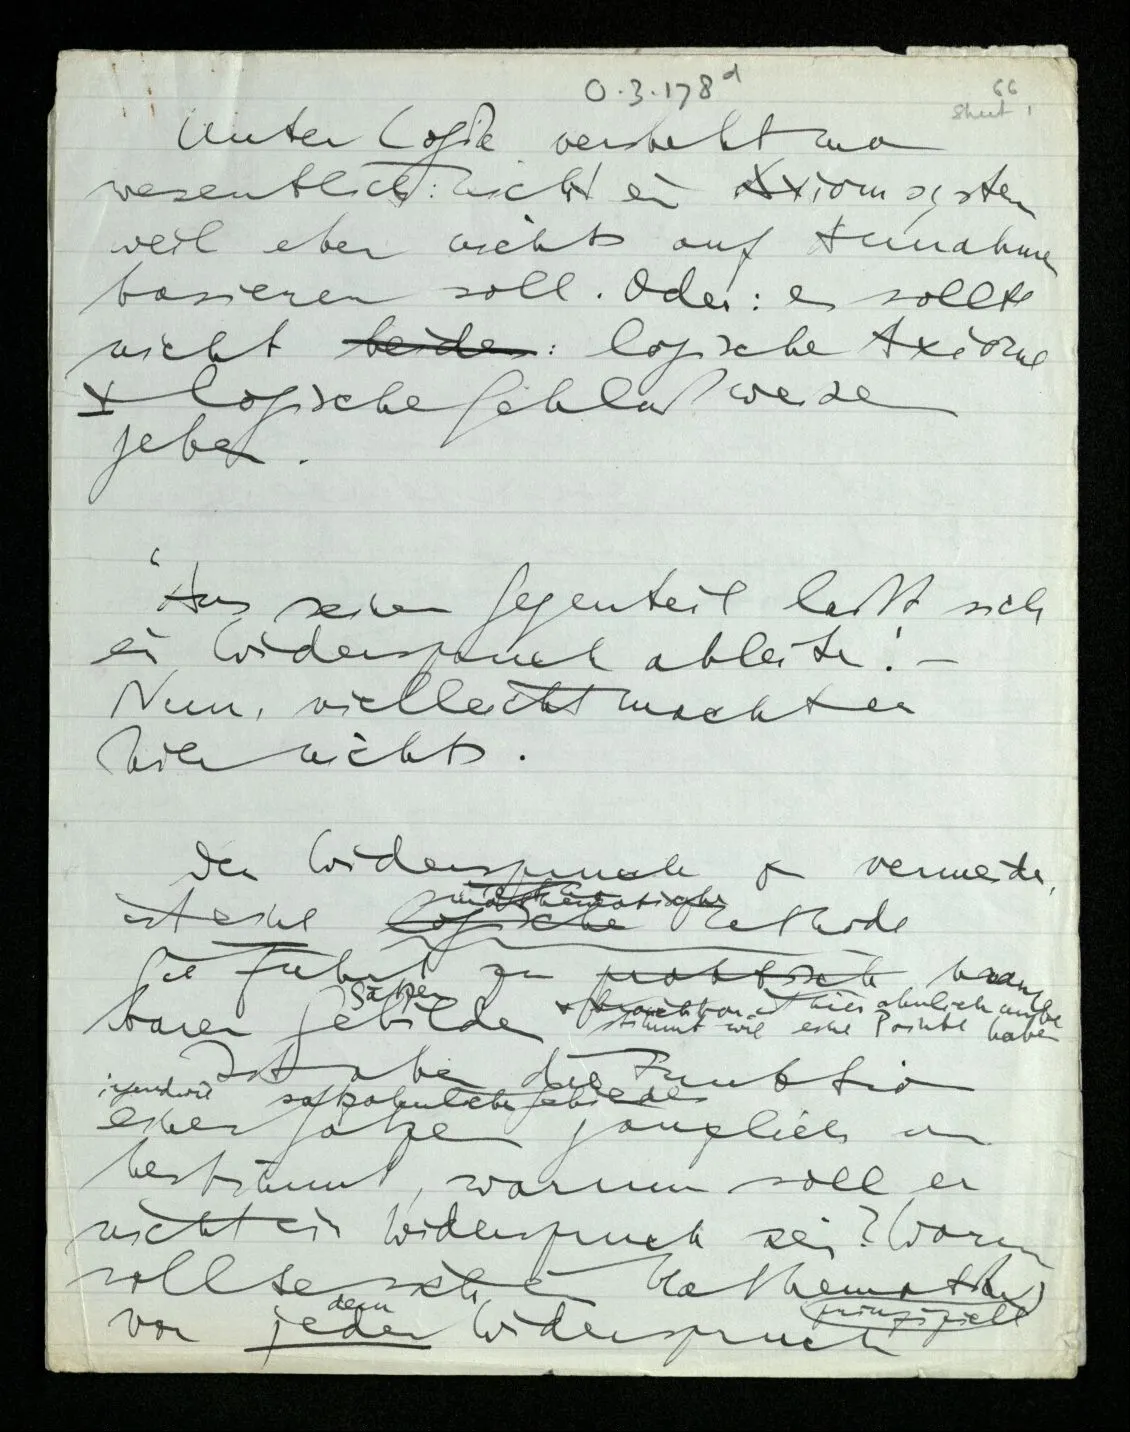 0.3.178 d
66
Sheet 1
Unter Logik versteht ma
wesentlich: nicht ei Axiomsystem
weil eben nichts auf Annahmen
basieren soll. Oder: es sollte
nicht beides: logische Axiome
+ logische Schlussweisen
geben.
"Aus seinem Gegenteil lasst sich
ei Widerspruch ableite'. –
Nun, vielleicht macht er
hier nichts.
Den Widerspruch zu vermeide,
ist eine logische mathematische Methode
Sie führt zu praktisch brauch
baren Gebilde Sätzen + Funktion ist hier ähnlich unbe
stimmt wie eine Pointe haben
Ist aber die Funktion
irgendwie satzähnliche Gebilde
eines Satzes gänzlich un
bestimmt, warum soll er
nicht ein Widerspruch sei? Warum
sollte sich ei Mathematiker
prinzipiell
vor jedem dem Widerspruch